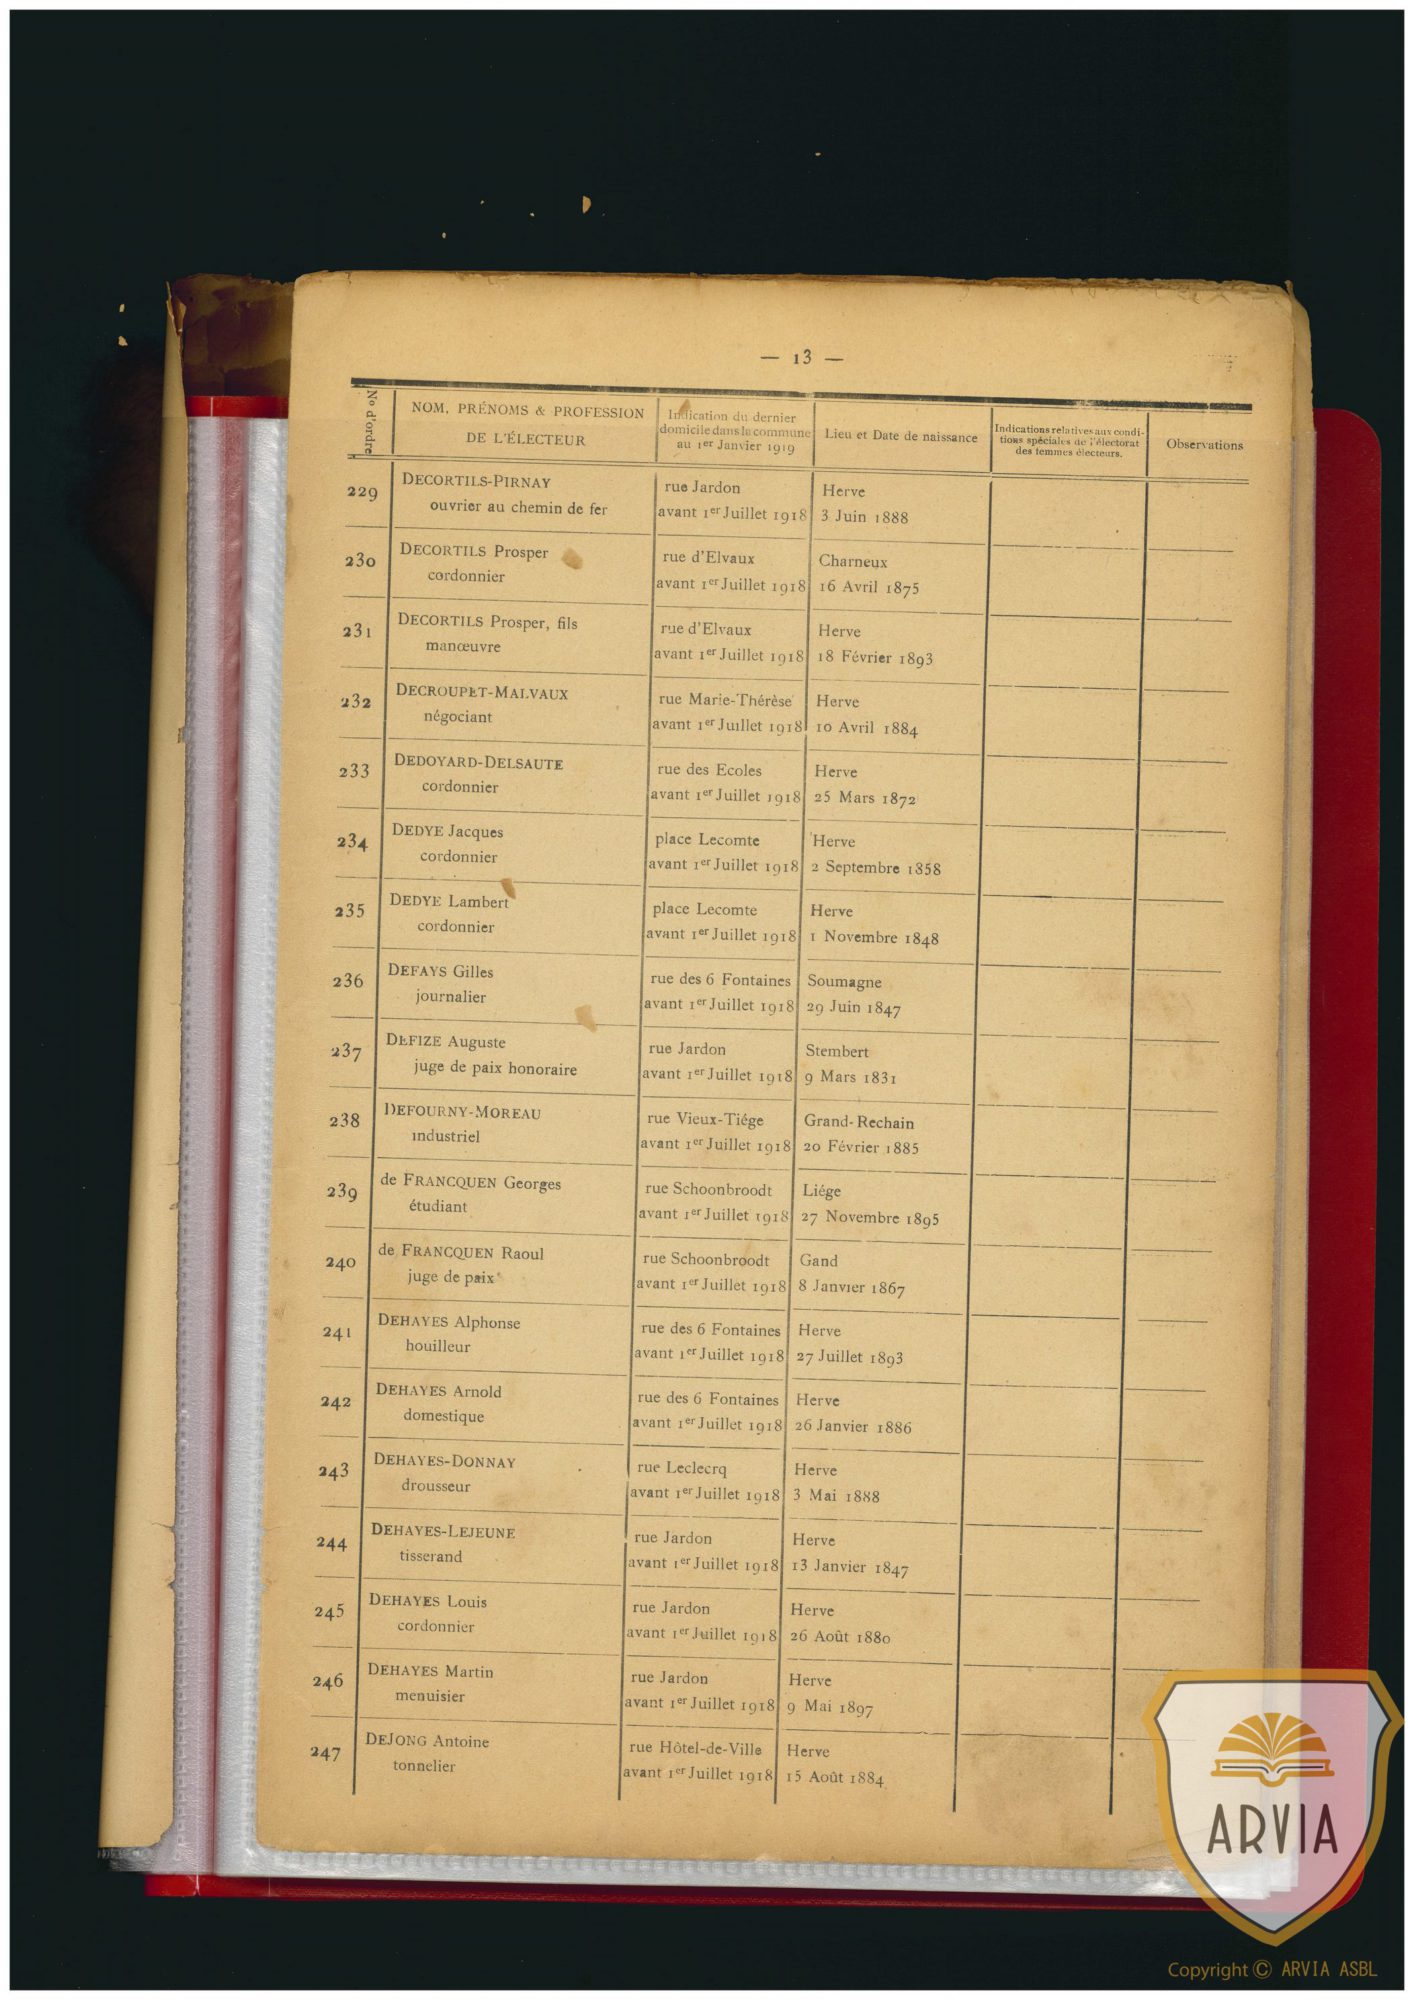 — 13 —
No d'ordre
NOM, PRÉNOMS & PROFESSION
DE L'ÉLECTEUR
Indication du dernier
domicile dans la commune
au 1er Janvier 1919
Lieu et Date de naissance
Indications relatives aux condi-
tions spéciales de l'électorat
des femmes électeurs.
Observations
229 DECORTILS-PIRNAY rue Jardon Herve
ouvrier au chemin de fer avant 1er Juillet 1918 3 Juin 1888
230 DECORTILS Prosper rue d'Elvaux Charneux
cordonnier avant 1er Juillet 1918 16 Avril 1875
231 DECORTILS Prosper, fils rue d'Elvaux Herve
manœuvre avant 1er Juillet 1918 18 Février 1893
232 DECROUPET-MALVAUX rue Marie-Thérèse Herve
négociant avant 1er Juillet 1918 10 Avril 1884
233 DEDOYARD-DELSAUTE rue des Ecoles Herve
cordonnier avant 1er Juillet 1918 25 Mars 1872
234 DEDYE Jacques place Lecomte Herve
cordonnier avant 1er Juillet 1918 2 Septembre 1858
235 DEDYE Lambert place Lecomte Herve
cordonnier avant 1er Juillet 1918 1 Novembre 1848
236 DEFAYS Gilles rue des 6 Fontaines Soumagne
journalier avant 1er Juillet 1918 29 Juin 1847
237 DEFIZE Auguste rue Jardon Stembert
juge de paix honoraire avant 1er Juillet 1918 9 Mars 1831
238 DEFOURNY-MOREAU rue Vieux-Tiége Grand-Rechain
industriel avant 1er Juillet 1918 20 Février 1885
239 de FRANCQUEN Georges rue Schoonbroodt Liége
étudiant avant 1er Juillet 1918 27 Novembre 1895
240 de FRANCQUEN Raoul rue Schoonbroodt Gand
juge de paix avant 1er Juillet 1918 8 Janvier 1867
241 DEHAYES Alphonse rue des 6 Fontaines Herve
houilleur avant 1er Juillet 1918 27 Juillet 1893
242 DEHAYES Arnold rue des 6 Fontaines Herve
domestique avant 1er Juillet 1918 26 Janvier 1886
243 DEHAYES-DONNAY rue Leclecrq Herve
drousseur avant 1er Juillet 1918 3 Mai 1888
244 DEHAYES-LEJEUNE rue Jardon Herve
tisserand avant 1er Juillet 1918 13 Janvier 1847
245 DEHAYES Louis rue Jardon Herve
cordonnier avant 1er Juillet 1918 26 Août 1880
246 DEHAYES Martin rue Jardon Herve
menuisier avant 1er Juillet 1918 9 Mai 1897
247 DEJONG Antoine rue Hôtel-de-Ville Herve
tonnelier avant 1er Juillet 1918 15 Août 1884
ARVIA
Copyright © ARVIA ASBL